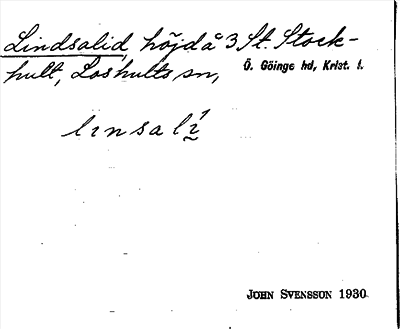 Lindsalid, höjd å 3 St. Stock-
hult, Loshults sn,
Ö. Göinge hd, Krist. l.
linsalí
JOHN SVENSSON 1930.